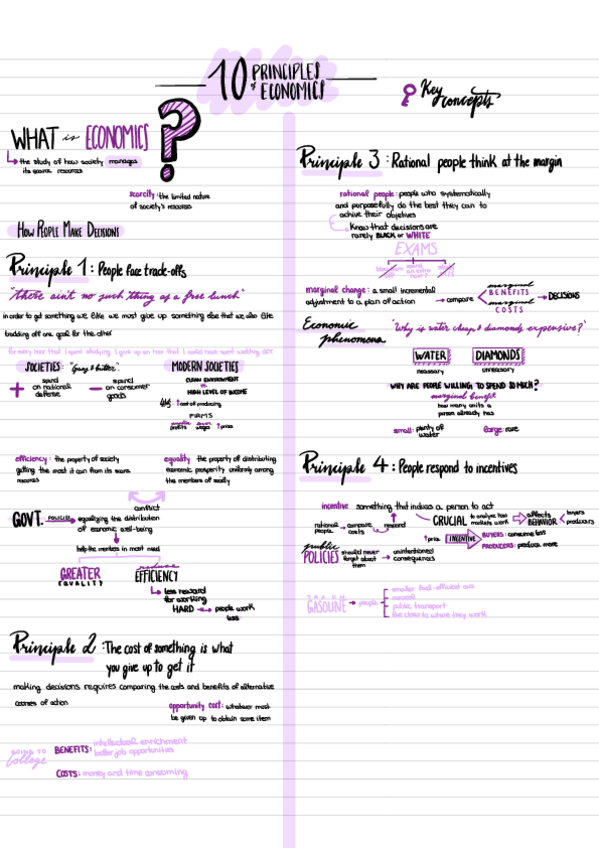 10 PRINCIPLES
of ECONOMICS
Key
concepts
WHAT is ECONOMICS ?
the study of how society manages
its scarce resources
scarcity: the limited nature
of society's resources
HOW PEOPLE MAKE DECISIONS
Principle 1: People face trade-offs
"there ain't no such thing as a free lunch"
in order to get something we like we must give up something else that we also like
trading off one goal for the other
For every hour that I spend studying, I give up an hour that I could have spent watching
SOCIETIES: "guns & butter"
+ spend
on national
defense
- spend
on consumer
goods
MODERN SOCIETIES
CLEAN ENVIRONMENT
vs.
HIGH LEVEL OF INCOME
↑ cost of producing
FIRMS
profits wages ↑ price
efficiency: the property of society
getting the most it can from its scarce
resources
equality: the property of distributing
economic prosperity uniformly among
the members of society
conflict
GOVT. POLICIES equalizing the distribution
of economic well-being
help the members in most need
GREATER
EQUALITY
reduce
EFFICIENCY
less reward
for working
HARD people work
less
Principle 2: The cost of something is what
you give up to get it
making decisions requires comparing the costs and benefits of alternative
courses of action
opportunity cost: whatever must
be given up to obtain some item
GOING TO
College
BENEFITS: intellectual enrichment
better job opportunities
COSTS: money and time consuming
Principle 3: Rational people think at the margin
rational people: people who systematically
and purposefully do the best they can to
achive their objetives
Know that decisions are
rarely BLACK or WHITE
EXAMS
marginal change: a small incremental
adjustment to a plan of action
compare
marginal
BENEFITS
marginal
COSTS
DECISIONS
Economic
phenomena
"Why is water cheap & diamonds expensive?"
WATER
necessary
DIAMONDS
unnecesary
WHY ARE PEOPLE WILLING TO SPEND SO MUCH?
marginal benefit
how many units a
person already has
small: plenty of
water
large: rare
Principle 4: People respond to incentives
incentive something that induces a person to act
rational
people
compare
costs
reward
CRUCIAL
to analyze how
markets work
affects
BEHAVIOR
buyers
producers
↑ price
INCENTIVE
BUYERS: consume less
PRODUCERS: produce more
public
POLICIES
should never
forget about
them
unintentioned
consequences
TAX ON
GASOLINE
people
smaller fuel-efficient cars
carpool
public transport
live closer to where they work